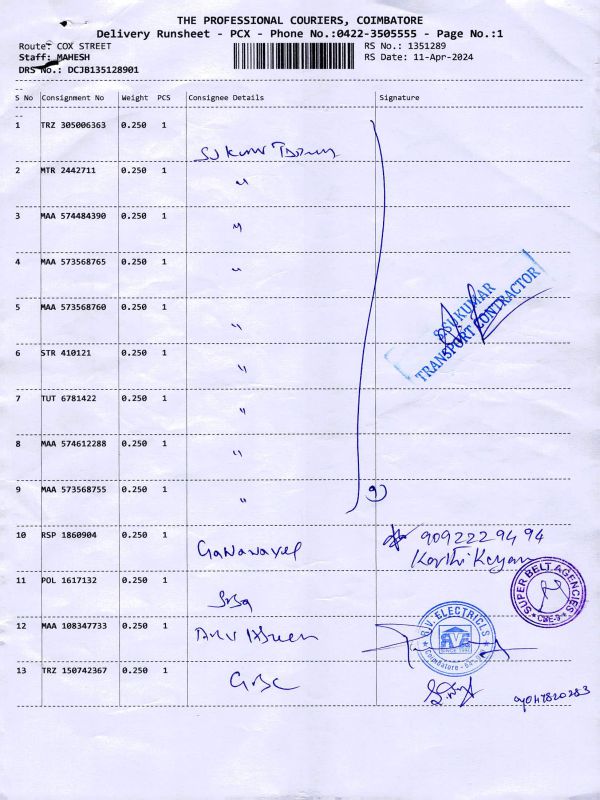 THE PROFESSIONAL COURIERS, COIMBATORE
Delivery Runsheet - PCX - Phone No.:0422-3505555 - Page No.:1
Route: COX STREET
RS No.: 1351289
Staff: MAHESH
RS Date: 11-Apr-2024
DRS No.: DCJB135128901
S No Consignment No Weight PCS Consignee Details Signature
1 TRZ 305006363 0.250 1
2 MTR 2442711 0.250 1
"
3 MAA 574484390 0.250 1
"
4 MAA 573568765 0.250 1
"
5 MAA 573568760 0.250 1
"
6 STR 410121 0.250 1
"
7 TUT 6781422 0.250 1
"
8 MAA 574612288 0.250 1
"
9 MAA 573568755 0.250 1
" 9)
S.SUKUMAR
TRANSPORT CONTRACTOR
10 RSP 1860904 0.250 1
Ganavayel
9092229494
Karthi Keyan
11 POL 1617132 0.250 1
SUPER BELT AGENCIES
CBE-9
12 MAA 108347733 0.250 1
R.V. ELECTRICALS
RVE
Coimbatore
13 TRZ 150742367 0.250 1
GBC